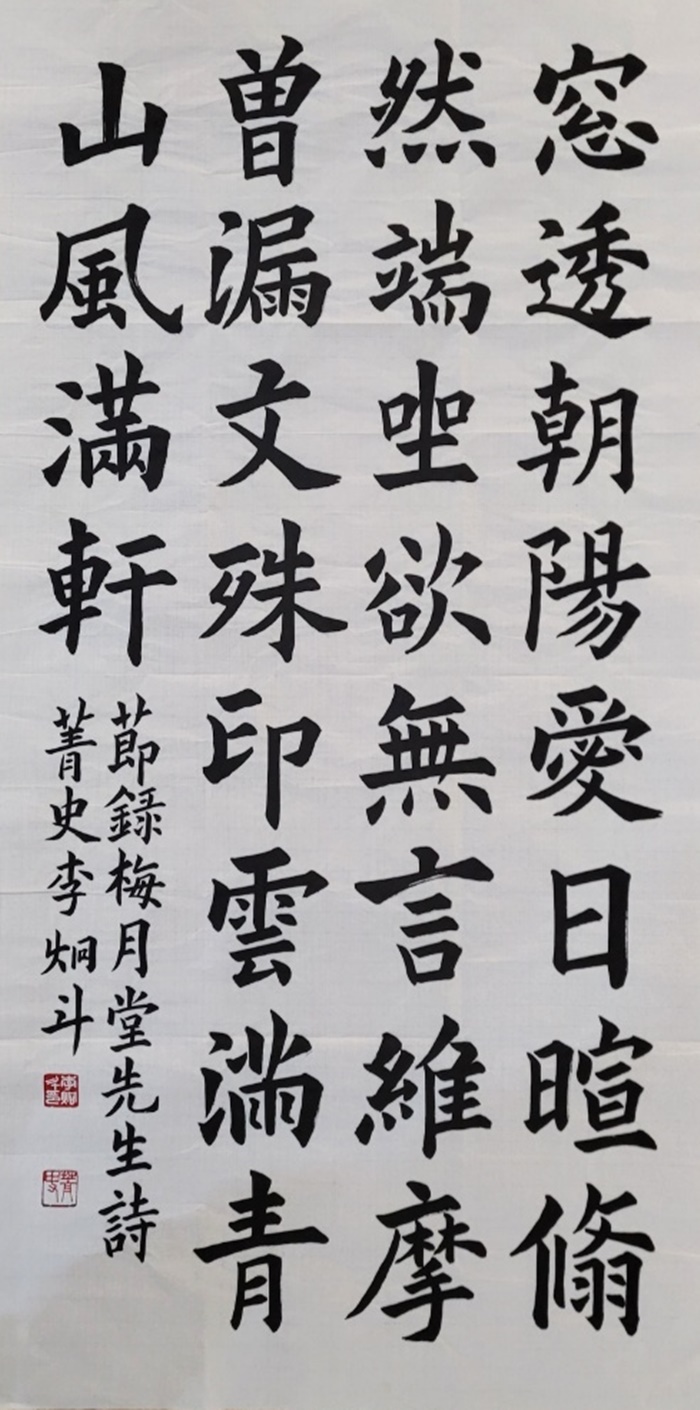 窓透朝陽愛日暄翛
然端坐欲無言維摩
曽漏文殊印雲满青
山風滿軒
莭録梅月堂先生詩
菁史李炯斗